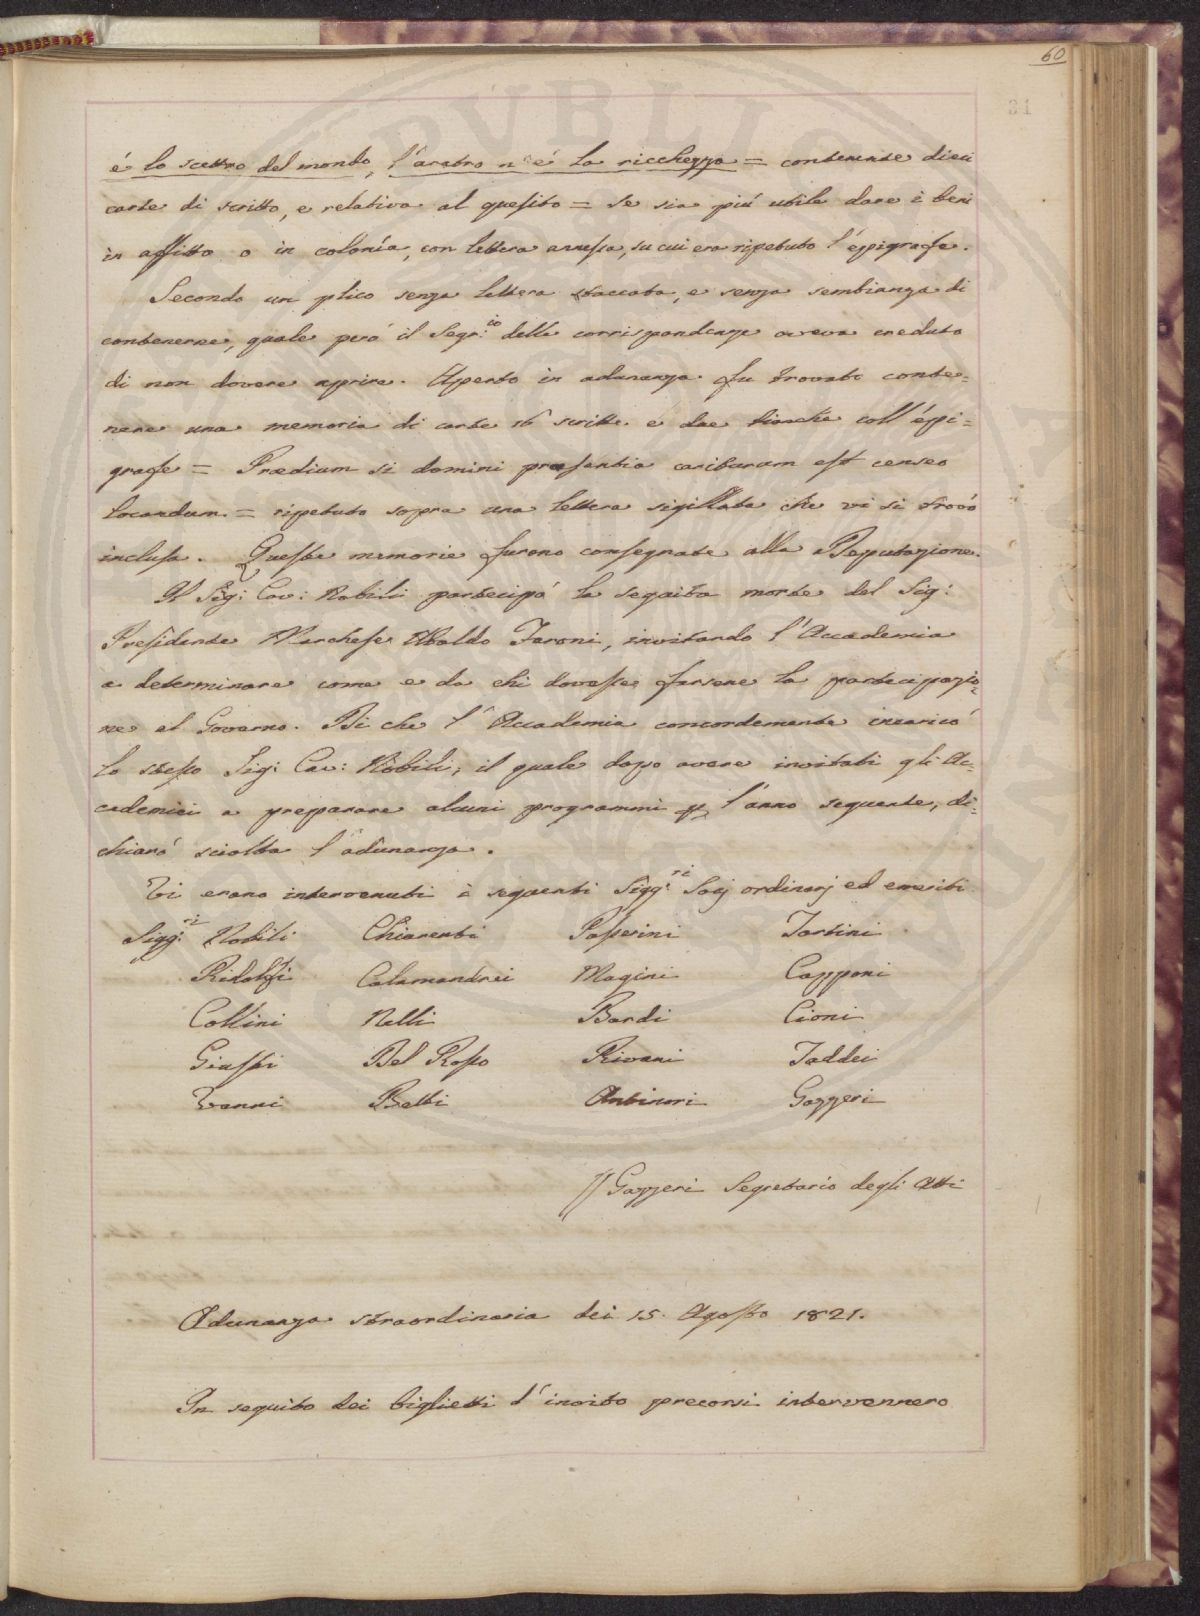 60
31
é lo scettro del mondo, l'aratro n'é la ricchezza = contenente dieci
carte di scritto, e relativa al quesito = se sia piú utile dare i beni
in affitto o in colonía, con lettera annessa, su cui era ripetuto l'epigrafe.
Secondo un plico senza lettera staccata, e senza sembianza di
contenerne, quale peró il Segr:io delle corrispondenze aveva creduto
di non dovere aprire. Aperto in adunanza fu trovato conte=
nere una memoria di carte 16 scritte e due bianche coll'epi=
grafe = Prædium si domini præsentia cariturum est censeo
locandum = ripetuto sopra una lettera sigillata che vi si trovó
inclusa. Queste memorie furono consegnate alla Deputazione.
Il Sig: Cav: Nobili partecipó la seguita morte del Sig:
Presidente Marchese Ubaldo Feroni, invitando l'Accademia
a determinare come e da chi dovesse farsene la partecipazio=
ne al Governo. Di che l'Accademia concordemente incaricó
lo stesso Sig: Cav: Nobili; il quale dopo avere invitati gli Ac=
cademici a preparare alcuni programmi p l'anno seguente, di=
chiaró sciolta l'adunanza.
Vi erano intervenuti i seguenti Sigg:ri Socj ordinarj ed emeriti
Sigg:ri Nobili Chiarenti Passerini Tartini
Ridolfi Calamandrei Magini Capponi
Collini Nelli Bardi Cioni
Giusti Del Rosso Rivani Taddei
Vanni Betti Antinori Gazzeri
Gazzeri Segretario degli Atti
Adunanza straordinaria dei 15. Agosto 1821.
In seguito dei biglietti d'invito precorsi intervennero